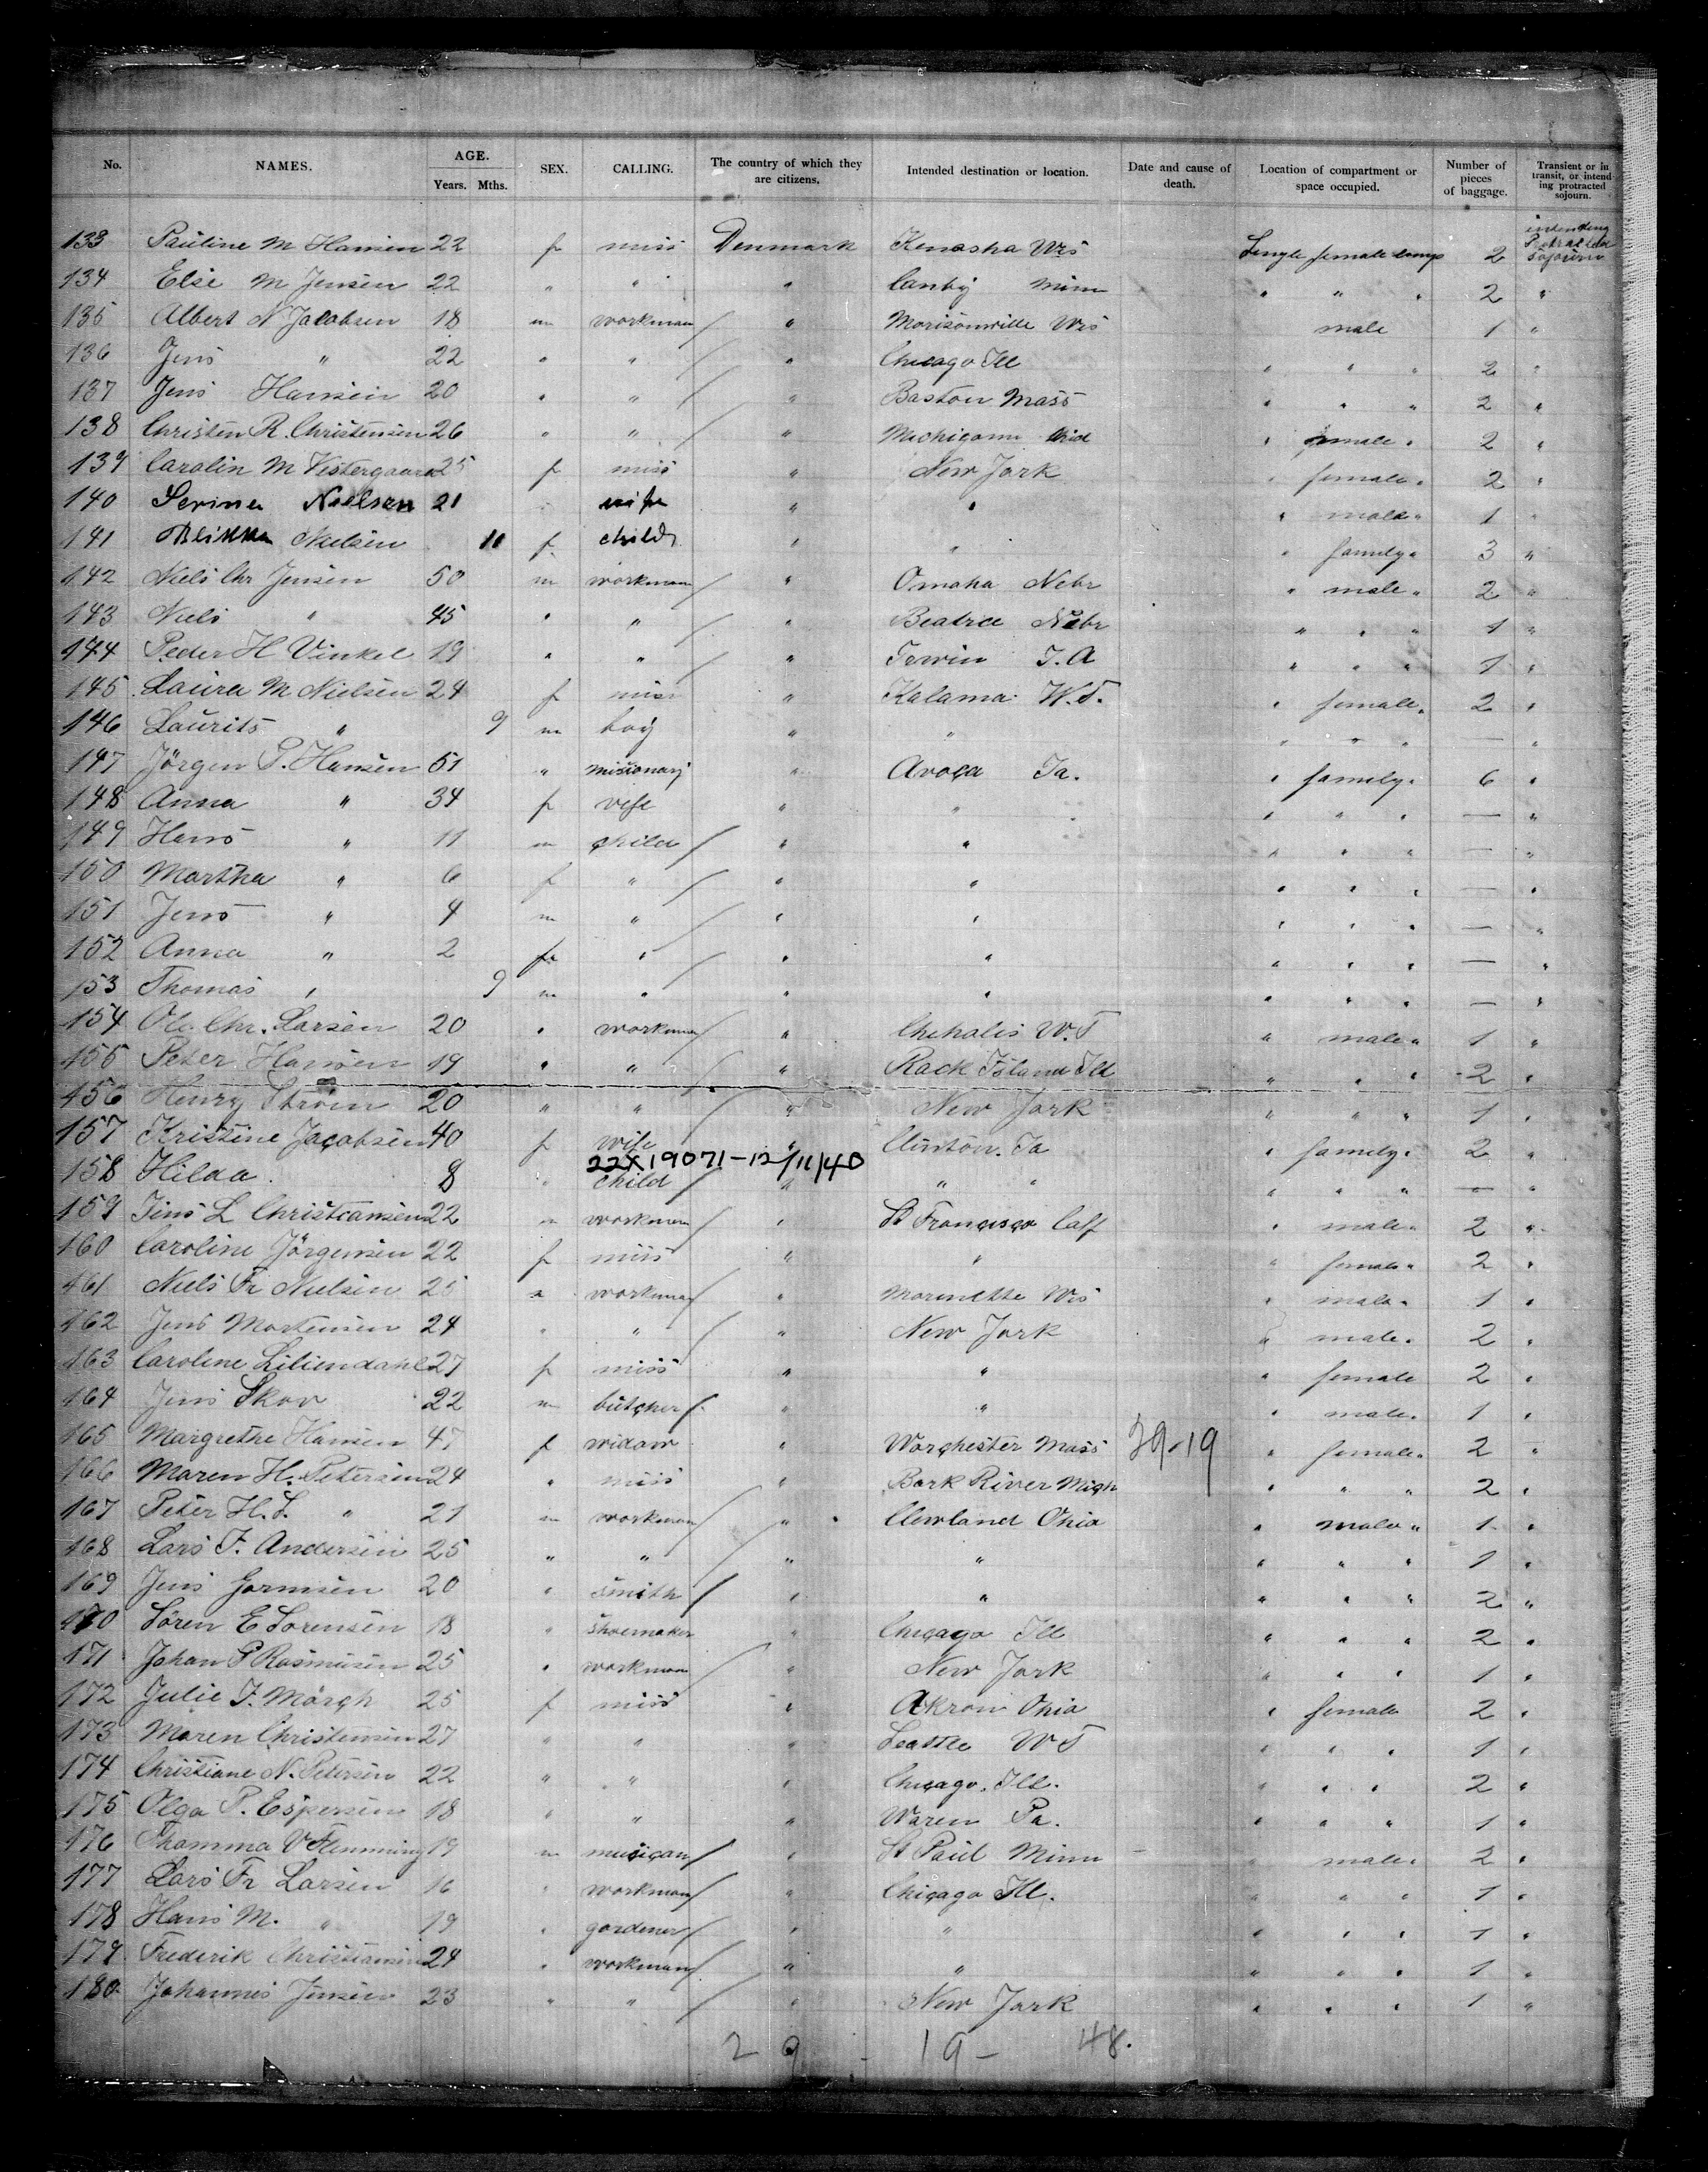 No. NAMES. AGE. Years. Mths. SEX. CALLING. The country of which they are citizens. Intended destination or location. Date and cause of death. Location of compartment or space occupied. Number of pieces of baggage. Transient or in transit, or intending protracted sojourn.
133 Pauline M Hansen 22 f miss Denmark Kenosha Wis Single female comp 2 intending Protracted Sojourn
134 Else M Jensen 22 " " " Canby Minn " " " 2 "
135 Albert N Jacobsen 18 m workman " Morisonville Wis male 1 "
136 Jens " 22 " " " Chicago Ill " " " 2 "
137 Jens Hansen 20 " " " Baston Mass " " " 2 "
138 Christen R. Christensen 26 " " " " male " 2 "
139 Carolin M Vestergaard 25 f miss " New Jork " female " 2 "
140 Serine Nielsen 21 " wife " " " male " 1 "
141 Nielsen 11 f child " " " family " 3 "
142 Niels Chr Jensen 50 m workman " Omaha Nebr " male " 2 "
143 Niels " 45 " " " Beatrice Nebr " " " 1 "
144 Peder H Vinkel 19 " " " Irwin I.A " " " 1 "
145 Laura M Nielsen 24 f miss " Kalama W.T. " female " 2 "
146 Laurits " 9 m boy " " " " " — "
147 Jörgen P. Hansen 51 " misionary " Avoca Ia. " family " 6 "
148 Anna " 34 f vife " " " " " — "
149 Hans " 11 m child " " " " " — "
150 Martha " 6 f " " " " " " — "
151 Jens " 4 m " " " " " " — "
152 Anna " 2 f " " " " " " — "
153 Thomas " 9 m " " " " " " — "
154 Ole Chr. Larsen 20 " workman " Chehalis W.T " male " 1 "
155 Peter Hansen 19 " " " Rack Island Ill " " " 2 "
156 Henry Ström 20 " " " New Jork " " " 1 "
157 Kristine Jacobsen 40 f wife " Clinton. Ia " family " 2 "
22X19071-12/11/40
158 Hilda 8 " child " " " " " " — "
159 Jens L Christiansen 22 m workman " St Francisco Calf " male " 2 "
160 Caroline Jörgensen 22 f miss " " " female " 2 "
161 Niels Fr Nielsen 25 " workman " Marinette Wis " male " 1 "
162 Jens Mortensen 24 " " " New Jork " male " 2 "
163 Caroline Liliendahl 27 f miss " " " female 2 "
164 Jens Skov 22 m butcher " " " male " 1 "
165 Margrethe Hansen 47 f widow " Worchester Mass 29-19 " female " 2 "
166 Maren H. Petersen 24 " miss " Bark River Migh " " " 2 "
167 Peter H.S. " 21 m workman " Clewland Ohio " male " 1 "
168 Lars F. Andersen 25 " " " " " " " 1 "
169 Jens Gormsen 20 " smith " " " " " 2 "
170 Sören E Sorensen 18 " shoemaker " Chicago Ill " " " 2 "
171 Johan P Rasmusen 25 " workman " New Jork " " " 1 "
172 Julie F. Mörch 25 f miss " Akron Ohio " female 2 "
173 Maren Christensen 27 " " " Seattle WT " " " 1 "
174 Christiane N. Petersen 22 " " " Chicago. Ill. " " " 2 "
175 Olga P. Espersen 18 " " " Waren Pa. " " " 1 "
176 V Flemming 19 m musican " St Paul Minn " male " 2 "
177 Lars Fr Larsen 16 " workman " Chicago Ill. " " " 1 "
178 Hans M. " 19 " gardener " " " " " 1 "
179 Frederik Christiansen 24 " workman " " " " " 1 "
180 Johannes Jensen 23 " " " New Jork " " " 1 "
29 - 19 - 48.